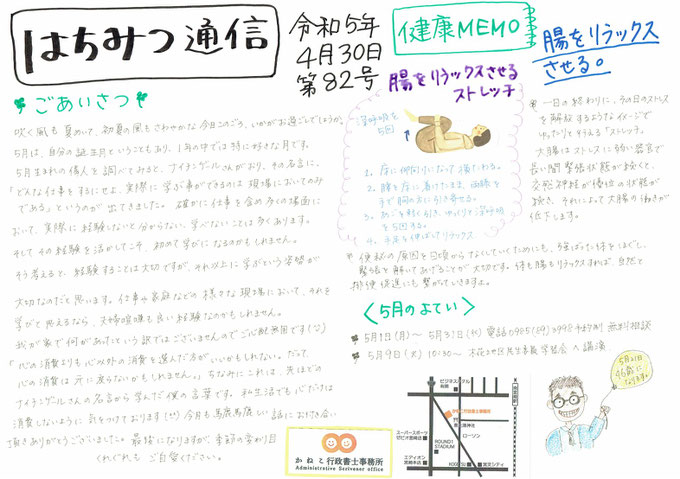 はちみつ通信
令和5年
4月30日
第82号
健康MEMO
腸をリラックス
させる。
腸をリラックスさせる
ストレッチ
ごあいさつ
吹く風も夏めいて、初夏の風もさわやかな今日このごろ、いかがお過ごしでしょうか。
5月は、自分の誕生月ということもあり、1年の中では特に好きな月です。
5月生まれの偉人を調べてみると、ナイチンゲールさんがおり、その名言に、
「どんな仕事をするにせよ、実際に学ぶ事ができるのは現場においてのみ
である」というのが出てきました。確かに仕事を含め多くの場面に
おいて、実際に経験しないと分からない、学べないことは多くあります。
そしてその経験を活かしてこそ、初めて学びになるのかもしれません。
そう考えると、経験することは大切ですが、それ以上に学ぶという姿勢が
大切なのだと思います。仕事や家庭などの様々な現場において、それを
学びと思えるなら、夫婦喧嘩も良い経験なのかもしれません。
我が家で何があけたという訳ではございませんのでご心配無用です(笑)
「心の消費よりも心以外の消費を選んだ方がいいかもしれない。だって
心の消費は元に戻らないかもしれません。」ちなみにこれは、先ほどの
ナイチンゲールさんの名言から学んだ僕の言葉です。私生活でも心だけは
消費しないように気をつけております(笑)今月も馬鹿馬鹿しい話にお付き合い
頂きありがとうございました。最後になりますが、季節の変わり目
くれぐれもご自愛ください。
深呼吸を
5回
1. 床に仰向けになって横たわる。
2. 腰を床に着けたまま、両膝を
手で胸の方に引き寄せる。
3. あごを軽く引き、ゆっくりと深呼吸
を5回する。
4. 手足を伸ばしてリラックス
一日の終わりに、今日のストレス
を解放するようなイメージで
ゆったりとどうえる「ストレッチ」。
大腸はストレスに弱い器官で
長い間緊張状態が続くと、
交感神経が優位の状態が
続き、それによって大腸の働きが
低下します。
便秘の原因を日頃からなくしていくためにも、強ばった体をほぐし、
緊張を解いてあげることが大切です。体も腸もリラックスすれば、自然と
排便促進にも繋がっていきますよ。
〈5月のよてい〉
5月1日(月)～5月31日(水) 電話0985(89)3998 無料相談
5月9日(火) 10:30～
講演
5月21日
46歳に
なります。
かねこ行政書士事務所
Administrative Scrivener office
ビジネスホテル
かねこ行政書士事務所
ローソン
スーパースポーツ
ゼビオ宮崎店
ROUND1
STADIUM
エディオン
宮崎本店
宮交シティ